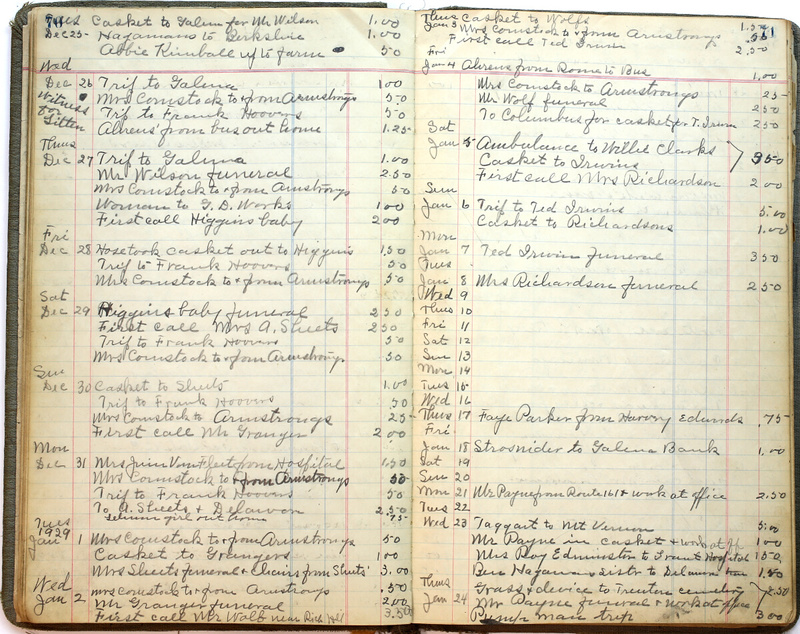 Tues Casket to Galena for Mr Wilson 1.00
Dec 25- Hagamans to Berkshire 1.00
Abbie Kimball up to farm 50
Wed
Dec 26 Trip to Galena 1 00
Mrs Comstock to + from Armstrongs 50
Trip to Frank Hoovers 50
Ahrens from bus out home 1.25
Thus
Dec 27 Trip to Galena 1.00
Mr Wilson funeral 2.50
Mrs Comstock to + from Armstrongs 50
Woman to G. D. Works 1 00
First call Higgins baby 2 00
Fri
Dec 28 Hose took casket out to Higgins 1 50
Trip to Frank Hoovers 50
Mrs Comstock to + from Armstrongs 50
Sat
Dec 29 Higgins baby funeral 2 50
First call Mrs A. Sheets 2 50
Trip to Frank Hoovers 50
Mrs Comstock to + from Armstrongs 50
Sun
Dec 30 Casket to Sheets 1.00
Trip to Frank Hoovers 50
Mrs Comstock to Armstrongs 25
First call Mr Granger 2 00
Mon
Dec 31 Mrs Van Fleet from Hospital 1.50
Mrs Comstock to + from Armstrongs 50
Trip to Frank Hoovers 50
To A. Sheets + Delawon 2.50
girl out home 75
Tues
1929
Jan 1 Mrs Comstock to + from Armstrongs 50
Casket to Grangers 1 00
Mrs Sheets funeral + Chairs from Sheets 3.00
Wed
Jan 2 Mrs Comstock to + from Armstrongs .50
Mr Granger funeral 2.00
First call Mr Wolf near Rich Hill 3.50
Thus Casket to Wolfs
Jan 3 Mrs Comstock to + from Armstrongs
First call Ted Irwin 2.50
Fri
Jan 4 Ahrens from Rome to Bus 1.00
Mrs Comstock to Armstrongs 25
Mr Wolf funeral 2 50
To Columbus for casket for T. Irwin 2 50
Sat
Jan 5 Ambulance to Willie Clarks
Casket to Irwins 3 50
First call Mrs Richardson 2 00
Sun
Jan 6 Trip to Ted Irwins 5.00
Casket to Richardsons 1.00
Mon
Jan 7 Ted Irwin funeral 3 50
Tues
Jan 8 Mrs Richardson funeral 2 50
Wed 9
Thus 10
Fri 11
Sat 12
Sun 13
Mon 14
Tues 15
Wed 16
Thus 17 Faye Parker from Harvey Edwards .75
Fri
Jan 18 Strosnider to Galena Bank 1.00
Sat 19
Sun 20
Mon 21 Mr Payne from Route 161 + work at office 2.50
Tues 22
Wed 23 Taggart to Mt Vernon 5.00
Mr Payne in casket + work at off 1 00
Mrs Roy Edminster to Grant Hospital 1 50
Ben Hagamans sister to Delawon 1.50
Thus Grass + device to Trenton cemetery
Jan 24 Mr Payne funeral + work at office 8.50
trip 3 00